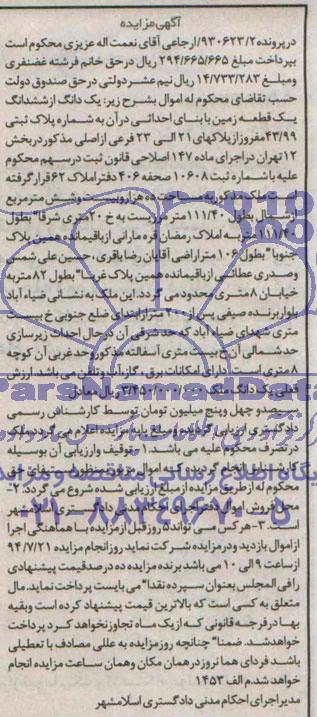 آگهی مزایده
درپرونده ۹۳۰۶۲۳/۲/ارجاعی آقای نعمت اله عزیزی محکوم است
بپرداخت مبلغ ۲۹۴/۶۶۵/۶۶۵ ریال در حق خانم فرشته غضنفری
ومبلغ ۱۴/۷۳۳/۲۸۳ ریال نیم عشر دولتی در حق صندوق دولت
حسب تقاضای محکوم له اموال بشرح زیر: یک دانگ از ششدانگ
یک قطعه زمین با بنای احداثی در آن به شماره پلاک ثبتی
۴۳/۹۹ مفروز از پلاکهای ۲۱ الی ۲۳ فرعی از اصلی مذکور در بخش
۱۲ تهران در اجرای ماده ۱۴۷ اصلاحی قانون ثبت در سهم محکوم
علیه با شماره ثبت ۱۰۶۰۸ صفحه ۴۰۶ دفتر املاک ۶۲ قرار گرفته
است ملک مذکور به مساحت ده هزار و بیست و شش متر مربع
از شمال بطول ۱۱۱/۴۰ متر مرزیست به خ ۲۰ متری شرقا" بطول
۱۱۱/۴۰ متر به املاک رمضان قره مارانی از باقیمانده همین پلاک
جنوبا" بطول ۱۰۶ متر اراضی آقایان رضا باقری، حسین علی شمس
وصدری عطائی از باقیمانده همین پلاک غربا" بطول ۸۲ متر به
خیابان ۸ متری محدود می گردد. این ملک به نشانی ضیاء آباد
بلوار بهنده صیفی پس از ۲۰۰ متر از ابتدای ضلع جنوبی خ بیست
متری شهدای ضیاء آباد که حد شرقی آن در حال احداث زیرسازی
حد شمالی آن خ بیست متری آسفالته مذکور وحد غربی آن کوچه
۸ متری است. دارای امکانات برق، گاز، آب وتلفن می باشد. ارزش
فعلی یک دانگ ملک ۳/۴۵۰/۰۰۰/۰۰۰ ریال معادل
سیصدو چهل وپنج میلیون تومان توسط کارشناس رسمی
دادگستری ارزیابی گردیده ومبلغ پایه مزایده اعلام می گردد. ملک
در تصرف محکوم علیه می باشد. ۱- توقیف وارزیابی آن بوسیله
کارشناس انجام گردیده که اموال مزبور بمنظور استیفای حق
محکوم له از طریق مزایده از مبلغ ارزیابی شده شروع می گردد. ۲-
محل فروش اموال دفتر اجرای احکام مدنی دادگستری اسلامشهر
است. ۳- هر کس می تواند ۵ روز قبل از مزایده با هماهنگی اجرا
از اموال بازدید ودر مزایده شرکت نماید روز انجام مزایده ۹۴/۷/۲۱
از ساعت ۹ الی ۱۰ می باشد برنده مزایده ده درصد قیمت پیشنهادی
را فی المجلس بعنوان سپرده نقدا" می بایست پرداخت نماید. مال
متعلق به کسی است که بالاترین قیمت پیشنهاد کرده است وبقیه
بها در فرجه قانونی که از یک ماه تجاوز نخواهد کرد پرداخت
خواهد شد. ضمنا" چنانچه روز مزایده به عللی مصادف با تعطیلی
باشد فردای همانروز در همان مکان وهمان ساعت مزایده انجام
خواهد شد. م الف ۱۴۵۳
مدیر اجرای احکام مدنی دادگستری اسلامشهر
ParsNamadData
۰۲۱-۸۸۳۴۹۶۷۰-۵